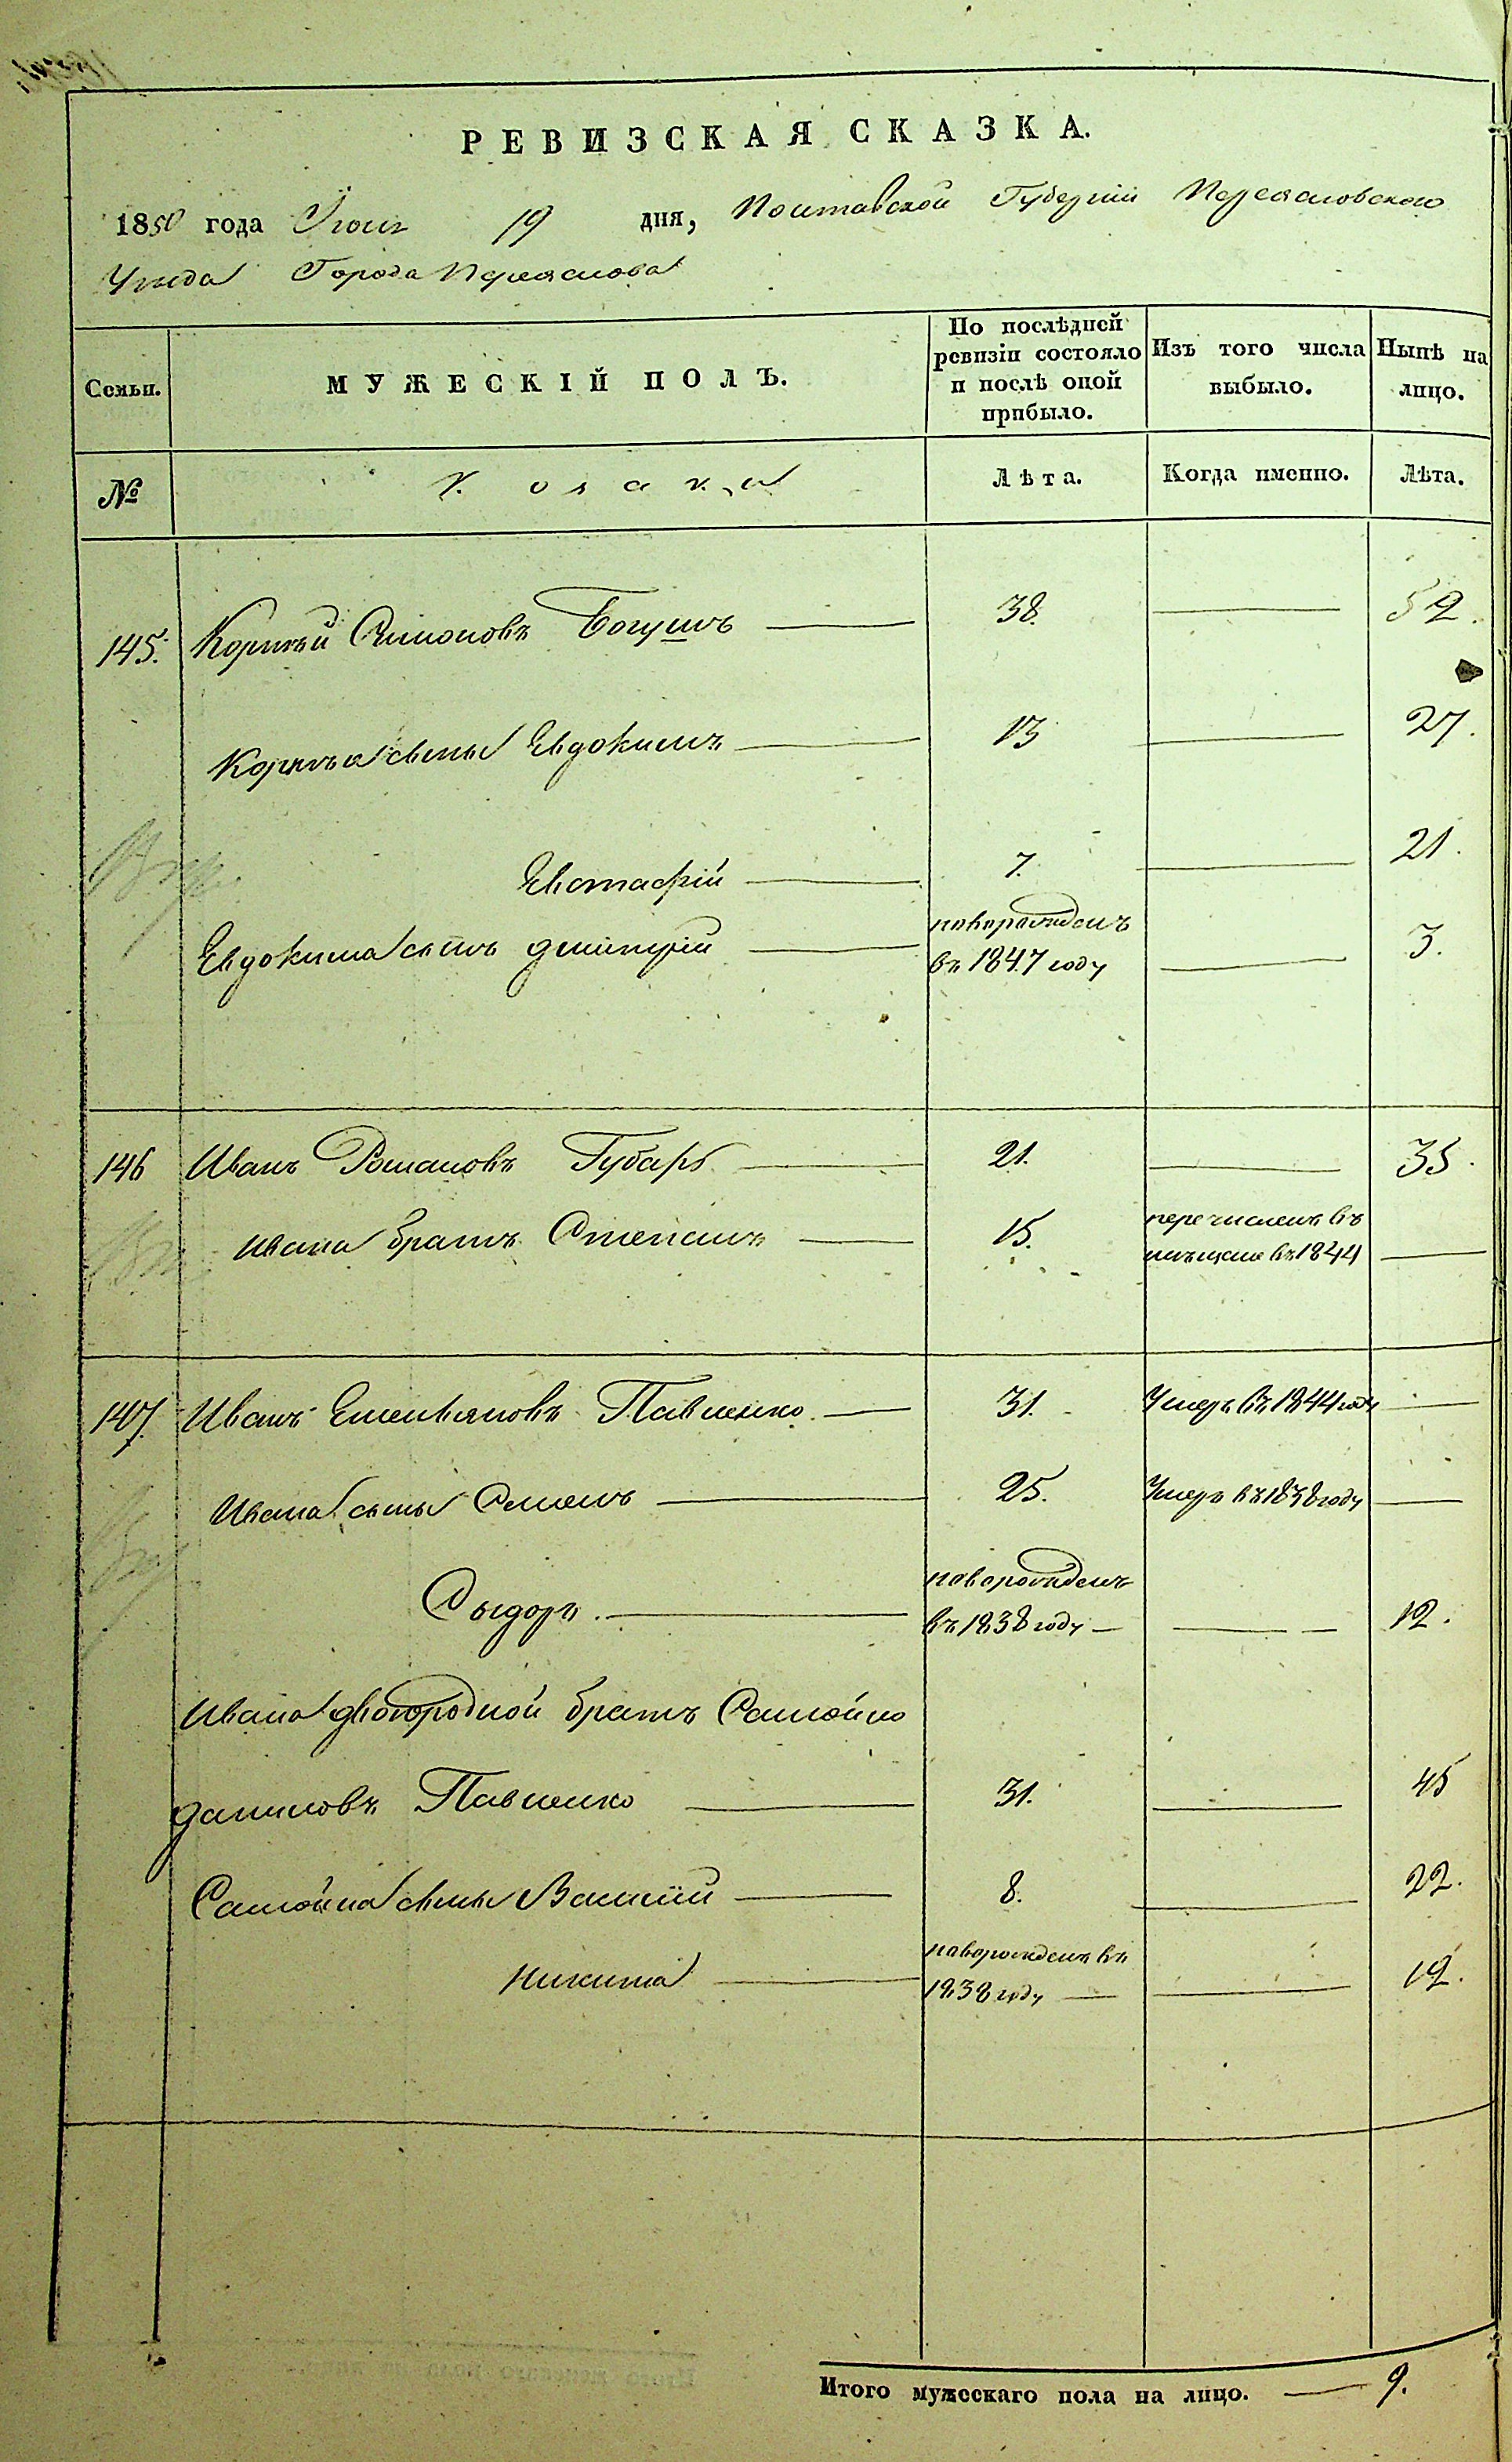 РЕВИЗСКАЯ СКАЗКА.
1850 года Іюня 19 дня, Полтавской Губерніи Переяславского
Уѣзда Города Переяслова
Семьи. МУЖЕСКІЙ ПОЛЪ. По послѣдней ревизіи состояло и послѣ оной прибыло. Изъ того числа выбыло. Нынѣ на лицо.
№ Козаки Лѣта. Когда именно. Лѣта.
145. Корнѣй Симоновъ Богушъ 38. 52.
Корнѣя сыны Евдокимъ 13 27.
Евстафій 7. 21.
Евдокима сынъ Дмитрій новорожденъ въ 1847 году 3.
146 Иванъ Романовъ Губарь 21. 35.
Ивана братъ Степанъ 15. перечисленъ въ мѣщане въ 1844
147. Иванъ Емельяновъ Павленко 31. Умеръ въ 1844 году
Ивана сыны Семенъ 25. Умеръ въ 1838 году
Сыдоръ новорожденъ въ 1838 году 12.
Ивана двоюродной братъ Самойло
Даниловъ Павленко 31. 45
Самойла сыны Василій 8. 22.
Никита новорожденъ въ 1838 году 12.
Итого мужескаго пола на лицо. 9.